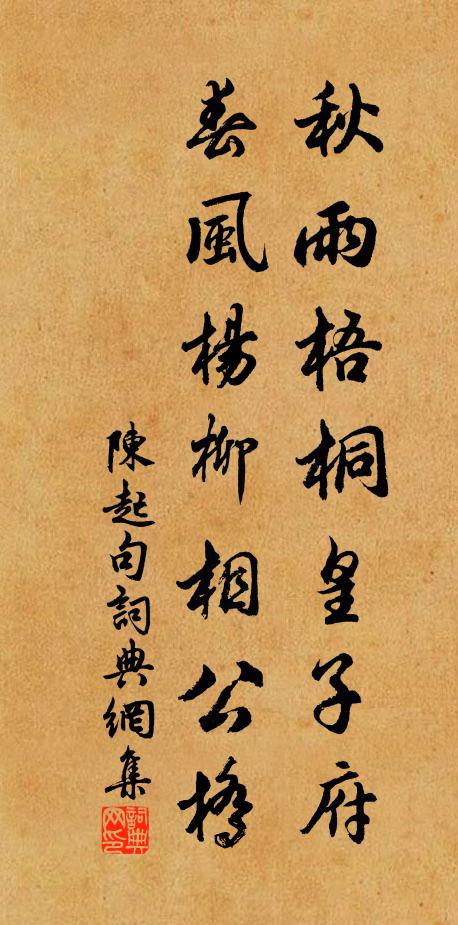 秋雨梧桐皇子府
春風楊柳相公橋
陳起句詞典網集
詞典網印